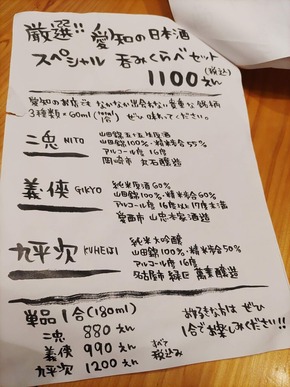 厳選!! 愛知の日本酒
スペシャル 呑みくらべセット
1100えん(税込)
愛知のお店でもなかなか出会えない貴重な銘柄
3種類×60ml(total 1合)ぜひ味わってください。
二兎 NITO
山田錦五十五生原酒
山田錦100%・精米歩合55%
アルコール度 16度
岡崎市 丸石醸造
義侠 GIKYO
純米原酒60%
山田錦100%・精米歩合60%
アルコール度 16度以上17度未満
愛西市 山忠本家酒造
九平次 KUHEIJI
純米大吟醸
山田錦100%・精米歩合50%
アルコール度 16度
名古屋市 緑区 萬乗醸造
単品 1合(180ml)
二兎 880えん
義侠 990えん
九平次 1200えん
すべて税込み
お好きな方は ぜひ
1合でお楽しみください!!